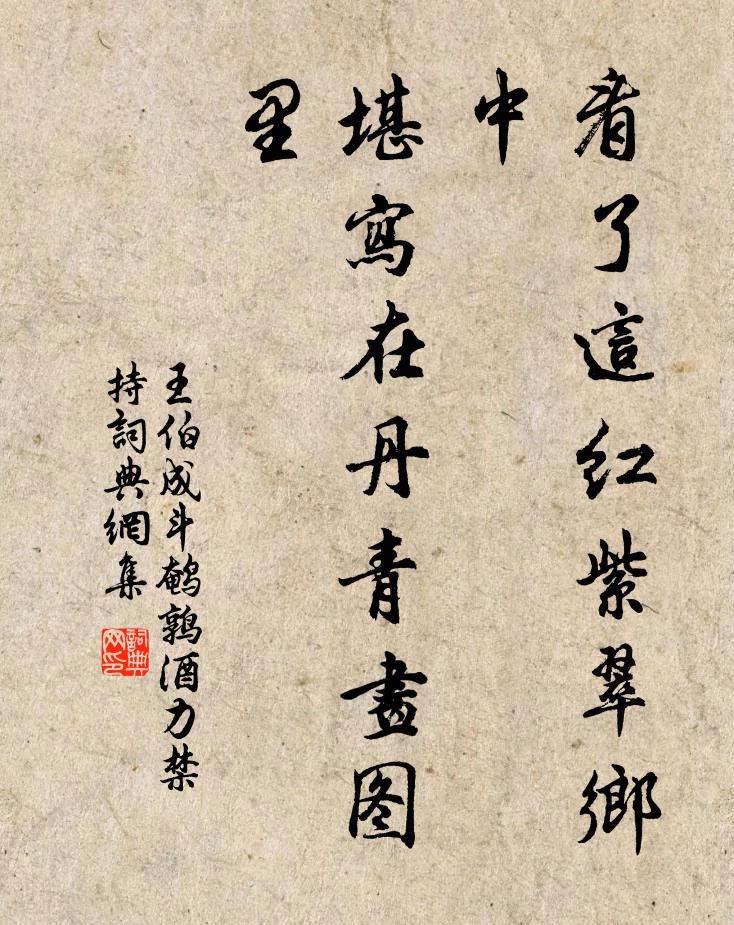 看了這红紫翠鄉
中
堪寫在丹青畫图
里
王伯成斗鹌鹑酒力禁
持詞典網集
詞典
网印